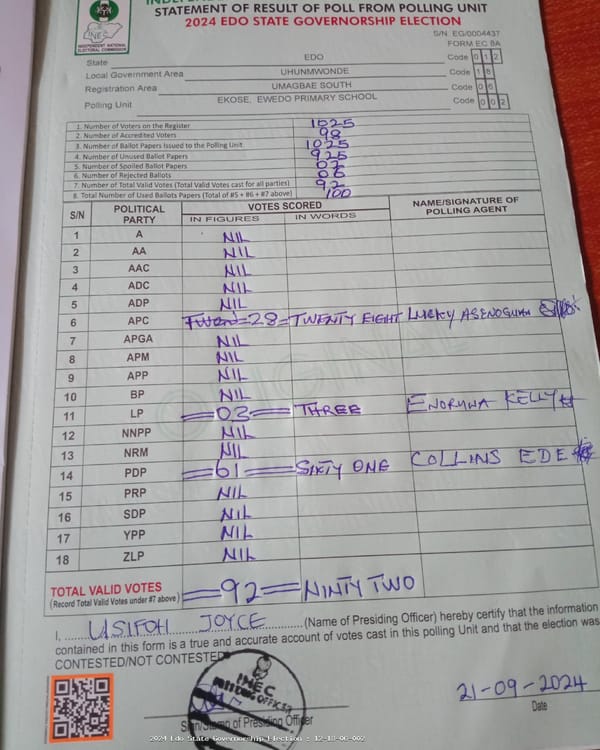 STATEMENT OF RESULT OF POLL FROM POLLING UNIT
2024 EDO STATE GOVERNORSHIP ELECTION
INEC
INDEPENDENT NATIONAL ELECTORAL COMMISSION
S/N: EG/0004437
FORM EC 8A
State EDO Code 0 1 2
Local Government Area UHUNMWONDE Code 1 8
Registration Area UMAGBAE SOUTH Code 0 6
Polling Unit EKOSE, EWEDO PRIMARY SCHOOL Code 0 0 2
1. Number of Voters on the Register 1025
2. Number of Accredited Voters 98
3. Number of Ballot Papers Issued to the Polling Unit 1025
4. Number of Unused Ballot Papers 925
5. Number of Spoiled Ballot Papers 02
6. Number of Rejected Ballots 06
7. Number of Total Valid Votes (Total Valid Votes cast for all parties) 92
8. Total Number of Used Ballots Papers (Total of #5 + #6 + #7 above) 100
S/N POLITICAL PARTY VOTES SCORED NAME/SIGNATURE OF POLLING AGENT
IN FIGURES IN WORDS
1 A NIL
2 AA NIL
3 AAC NIL
4 ADC NIL
5 ADP NIL
6 APC 28 = TWENTY EIGHT LUCKY ASENOGUAN
7 APGA NIL
8 APM NIL
9 APP NIL
10 BP NIL
11 LP =03= THREE KELLY
12 NNPP NIL
13 NRM NIL
14 PDP =61= SIXTY ONE COLLINS EDE
15 PRP NIL
16 SDP NIL
17 YPP NIL
18 ZLP NIL
ORIGINAL
TOTAL VALID VOTES =92= NINTY TWO
(Record Total Valid Votes under #7 above)
I, USIFOH JOYCE (Name of Presiding Officer) hereby certify that the information
contained in this form is a true and accurate account of votes cast in this polling Unit and that the election was
CONTESTED/NOT CONTESTED
INEC
PRESIDING OFFICER
21-09-2024
Sign/Stamp of Presiding Officer Date
2024 Edo State Governorship Election : 12-18-06-002